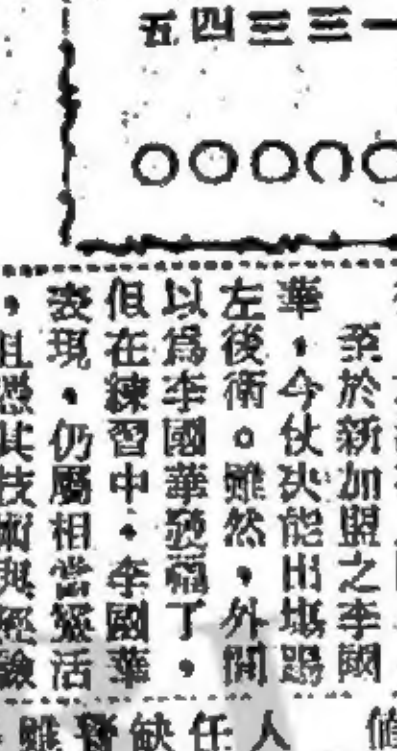 一三三四五
〇〇〇〇〇
至於新加盟之李國
華，今仗决能出塲踢
左後衛。雖然，外間
以為李國華發福了，
但在練習中，李國華
表現，仍屬相當靈活
，且憑其技術與經驗
人任缺督雖